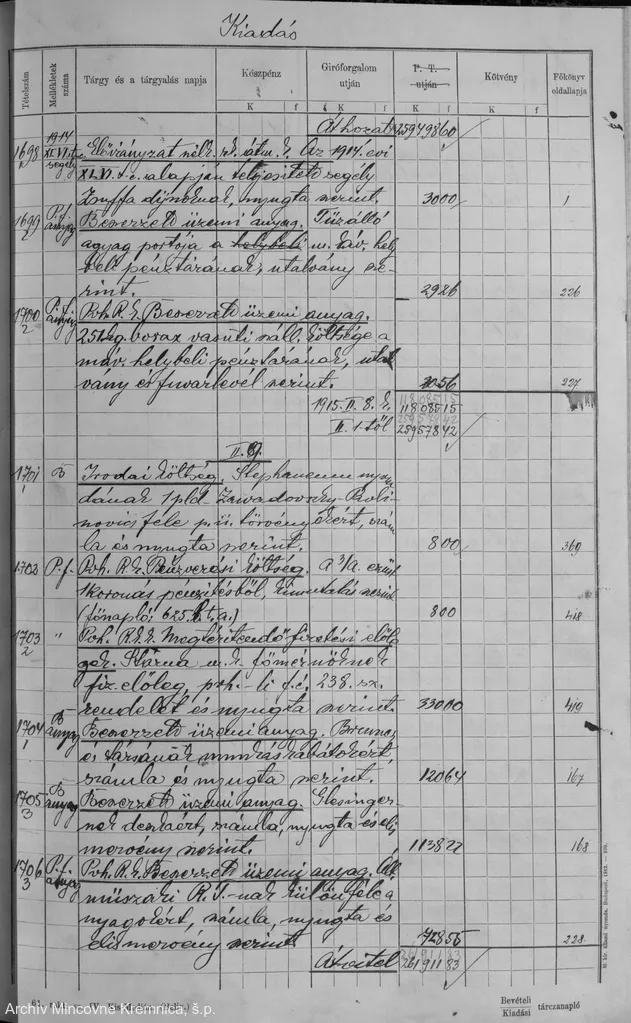 Kiadás
Tételszám
Mellékletek száma
Tárgy és a tárgyalás napja
Készpénz
Giróforgalom utján
P. T. utján
Kötvény
Főkönyv oldallapja
K f K f K f K f
Áthozat 259498 60
1698 1914 XLVI. t.c. segély Előirányzat nélk. rk. átm. k. Az 1914. évi
XLVI. t. c. alapján teljesített segély
dijnoknak, nyugta szerint. 30 00 1
1699 2 P.f. anyag Beszerzett üzemi anyag. Tüzálló
agyag portója a helybeli m. káv. hely
beli pénztárának, utalvány sze-
rint. 29 26 226
1700 2 P.f. anyag Poh. R. k. Beszerzett üzemi anyag.
251 kg. borax vasuti száll. költsége a
máv. helybeli pénztárának, utal
vány és fuvarlevél szerint. 56 227
1915. II. 8. k. 118085 15
II. 1-től 259578 42
II. 9.
1701 1 B Irodai költség. Stephaneum nyom
dának 1 pld. Zawadovszky-
novics féle p. ü. törvényekért, szám
la és nyugta szerint. 8 00 369
1702 P.f. Poh. R. k. Pénzverési költség. a ezüst
1 koronás pénzítésből, kimutatás szerint
(főnapló: 625 t. a.) 8 00 418
1703 2 " Poh. R. k. Megtérítendő fizetési előle
gek. m. k. főmérnöknek
fiz. előleg, poh.-li f. é. 238. sz.
rendelet és nyugta szerint. 330 00 419
1704 1 B anyag Beszerzett üzemi anyag.
és társának munkáskabátokért,
számla és nyugta szerint. 120 64 167
1705 3 B anyag Beszerzett üzemi anyag. Glesinger-
nek deszkáért, számla, nyugta és elis
mervény szerint. 1138 27 168
1706 3 P.f. anyag Poh. R. k. Beszerzett üzemi anyag. Ált.
műszaki R. T.-nak különféle a
nyagokért, számla, nyugta és
elismervény szerint. 728 55 228
Átvitel 261911 83
M. kir. állami nyomda. Budapest, 1912.
Archív Mincovne Kremnica, š.p.
Bevételi
Kiadási tárczanapló